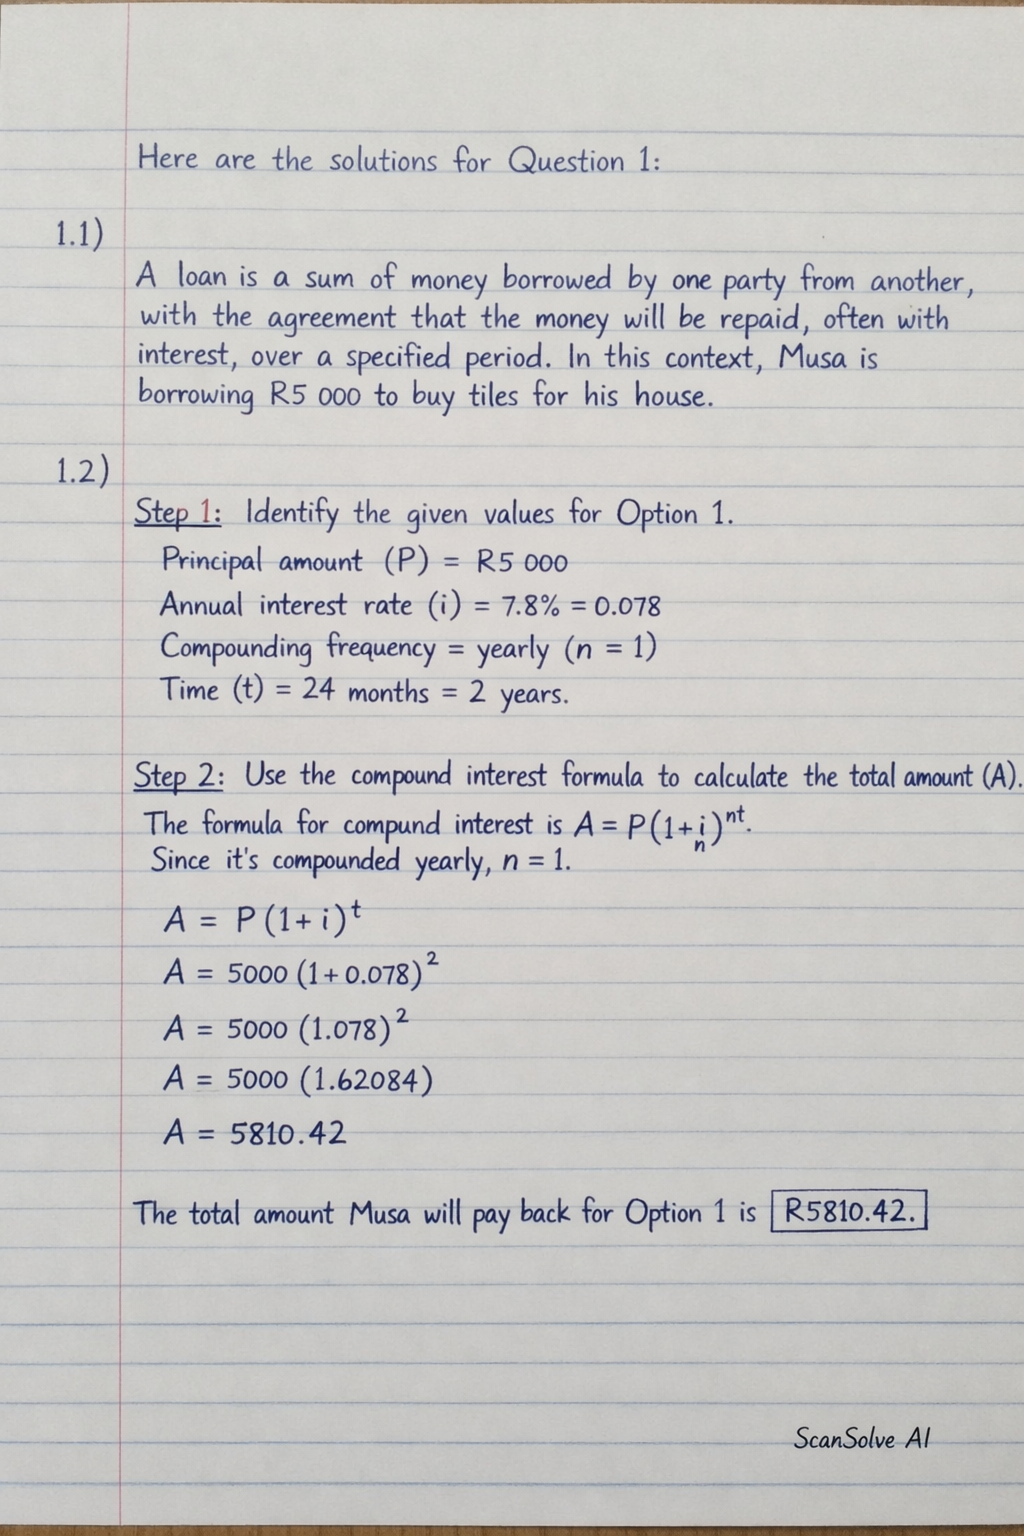 Here are the solutions for Question 1:
1.1)
A loan is a sum of money borrowed by one party from another,
with the agreement that the money will be repaid, often with
interest, over a specified period. In this context, Musa is
borrowing R5 000 to buy tiles for his house.
1.2)
Step 1: Identify the given values for Option 1.
Principal amount (P) = R5 000
Annual interest rate (i) = 7.8% = 0.078
Compounding frequency = yearly (n = 1)
Time (t) = 24 months = 2 years.
Step 2: Use the compound interest formula to calculate the total amount (A).
The formula for compund interest is A = P(1+i/n)^nt.
Since it's compounded yearly, n = 1.
A = P(1+i)^t
A = 5000 (1+0.078)^2
A = 5000 (1.078)^2
A = 5000 (1.62084)
A = 5810.42
The total amount Musa will pay back for Option 1 is R5810.42.
ScanSolve AI